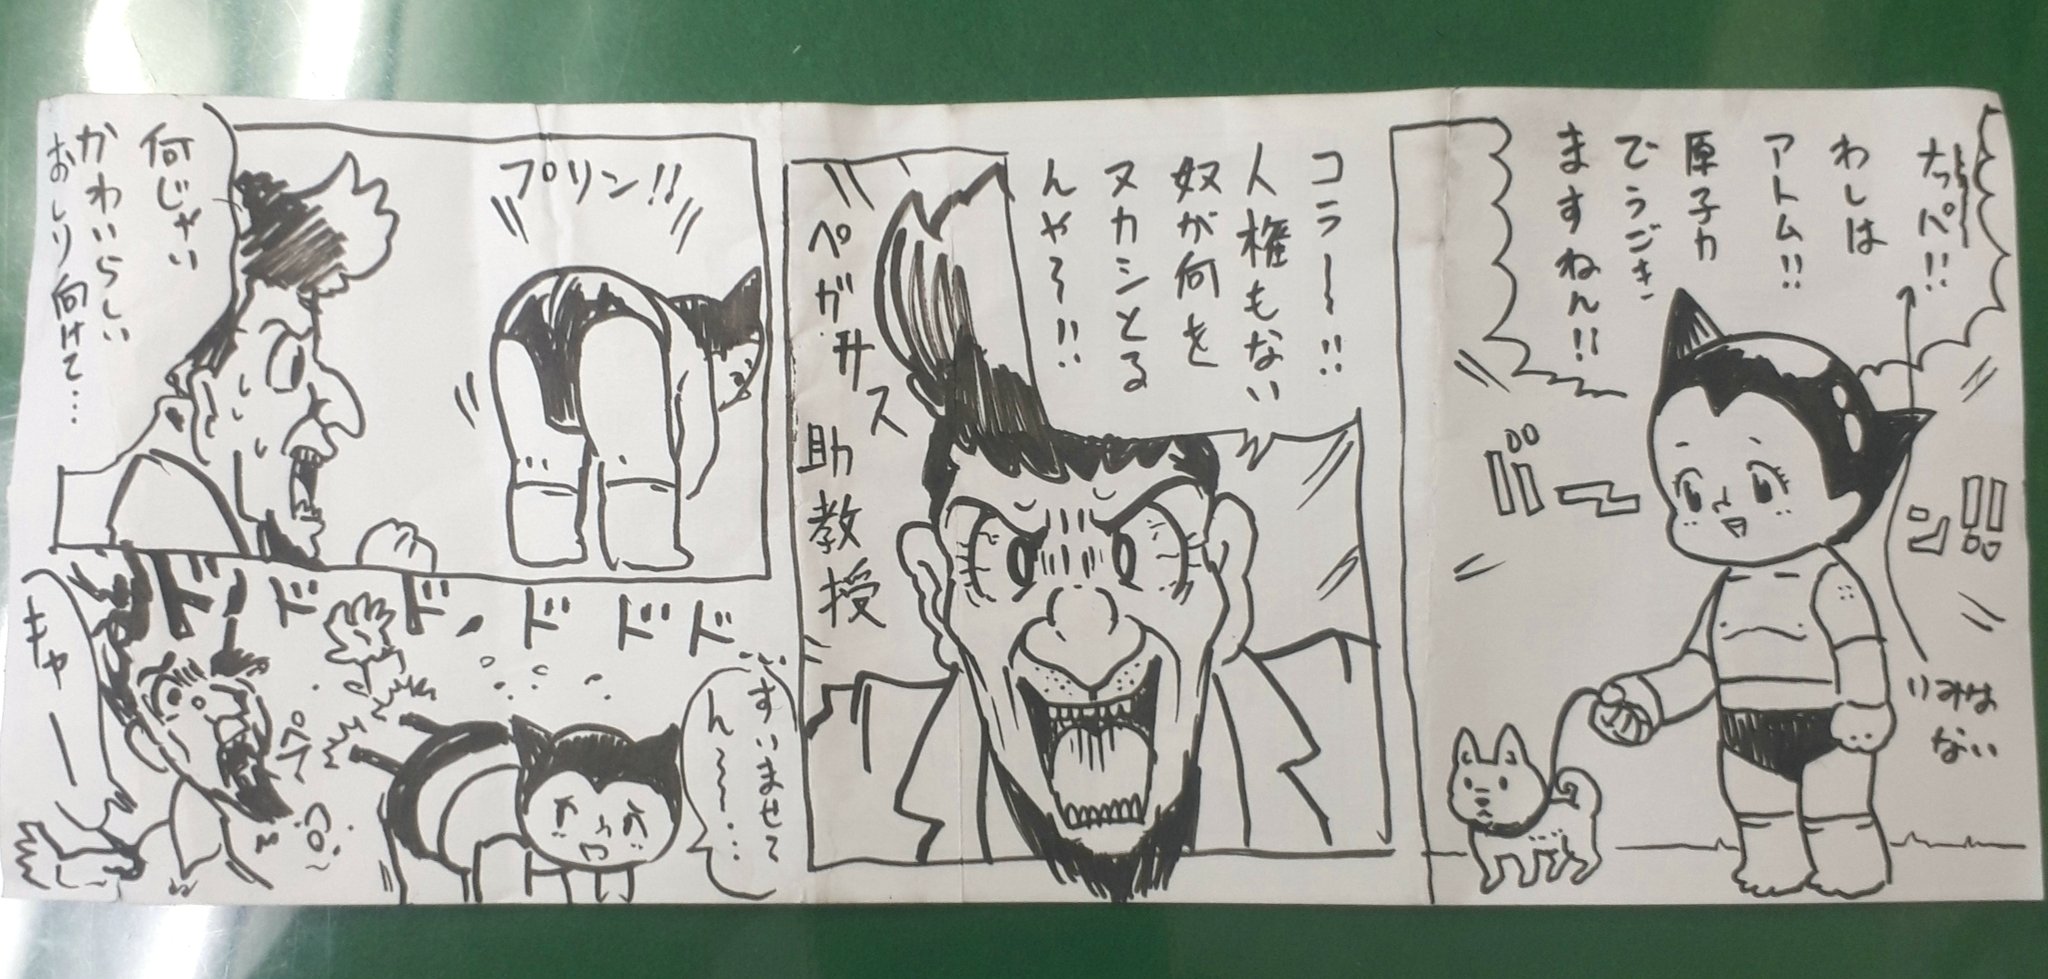 たっぺ!!
わしは
アトム!!
原子力
でうごき
ますねん!!
バーン!!
いみは
ない
コラ~!!
人権もない
奴が何を
ヌカシとる
んや~!!
ペガサス
助教授
プリン!!
何じゃい
かわいらしい
おしり向けて…
ドドドドドド
すいませて
ん~~…
キャー